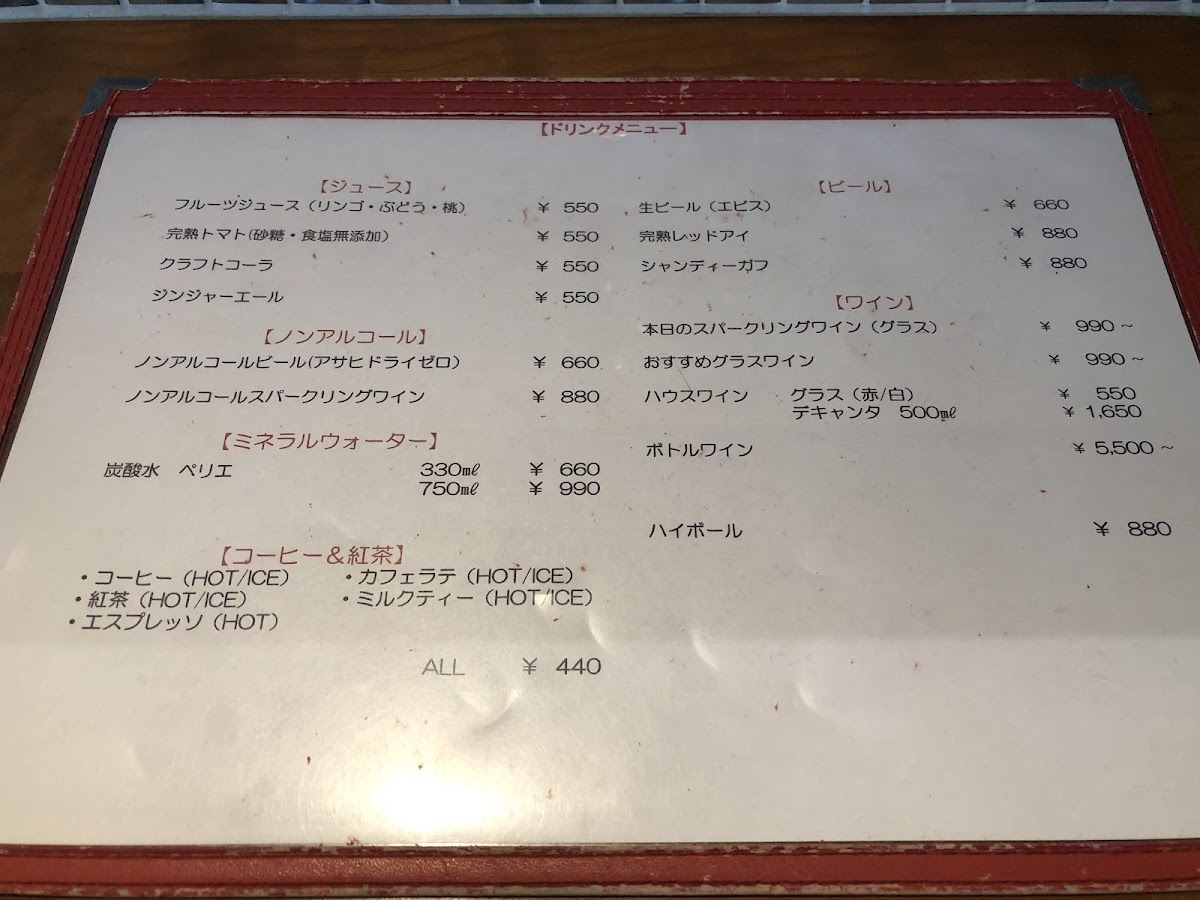 【ドリンクメニュー】
【ジュース】
フルーツジュース（リンゴ・ぶどう・桃） ¥ 550
完熟トマト(砂糖・食塩無添加) ¥ 550
クラフトコーラ ¥ 550
ジンジャーエール ¥ 550
【ノンアルコール】
ノンアルコールビール(アサヒドライゼロ) ¥ 660
ノンアルコールスパークリングワイン ¥ 880
【ミネラルウォーター】
炭酸水 ペリエ 330㎖ ¥ 660
750㎖ ¥ 990
【コーヒー＆紅茶】
・コーヒー（HOT/ICE） ・カフェラテ（HOT/ICE）
・紅茶（HOT/ICE） ・ミルクティー（HOT/ICE）
・エスプレッソ（HOT）
ALL ¥ 440
【ビール】
生ビール（エビス） ¥ 660
完熟レッドアイ ¥ 880
シャンディーガフ ¥ 880
【ワイン】
本日のスパークリングワイン（グラス） ¥ 990～
おすすめグラスワイン ¥ 990～
ハウスワイン グラス（赤/白） ¥ 550
デキャンタ 500㎖ ¥ 1,650
ボトルワイン ¥ 5,500～
ハイボール ¥ 880